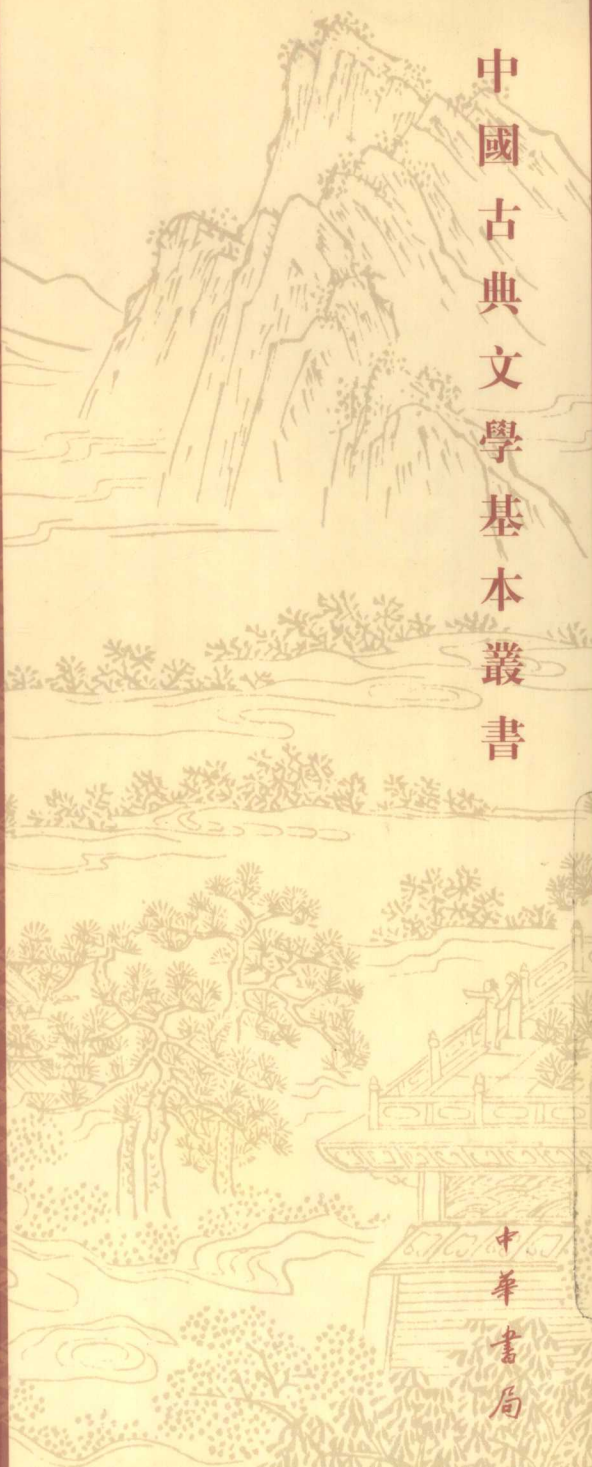 中國古典文學基本叢書
中華書局